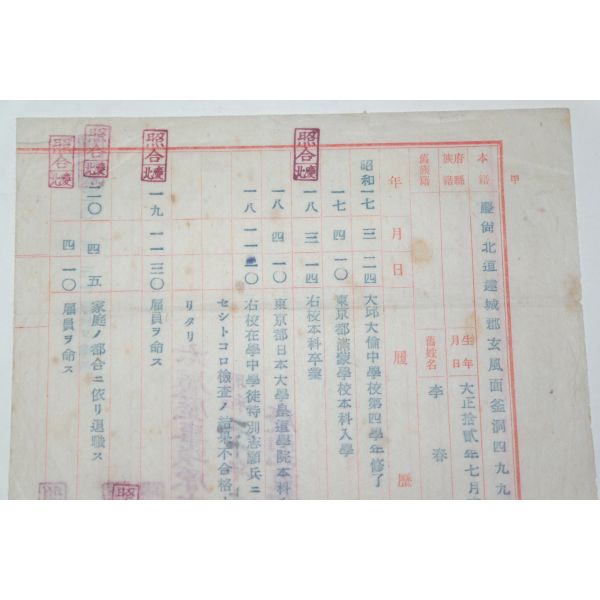 甲
本籍 慶尚北道達城郡玄風面釜洞四九九
府縣族籍
舊族籍
生年月日 大正拾貳年七月
舊姓名 李 春
年月日 履歷
昭和一七 三 二四 大邱大倫中學校第四學年修了
一七 四 一〇 東京都滿蒙學校本科入學
一八 三 一四 右校本科卒業
一八 四 一〇 東京都日本大學皇道學院本科
一八 一一 二〇 右校在學中學徒特別志願兵ニ
セシトコロ檢査ノ結果不合格
リタリ
一九 一一 三〇 雇員ヲ命ス
二〇 四 五 家庭ノ都合ニ依リ退職ス
四 一〇 雇員ヲ命ス
照合 慶北
照合 慶北
照合 慶北
照合 慶北